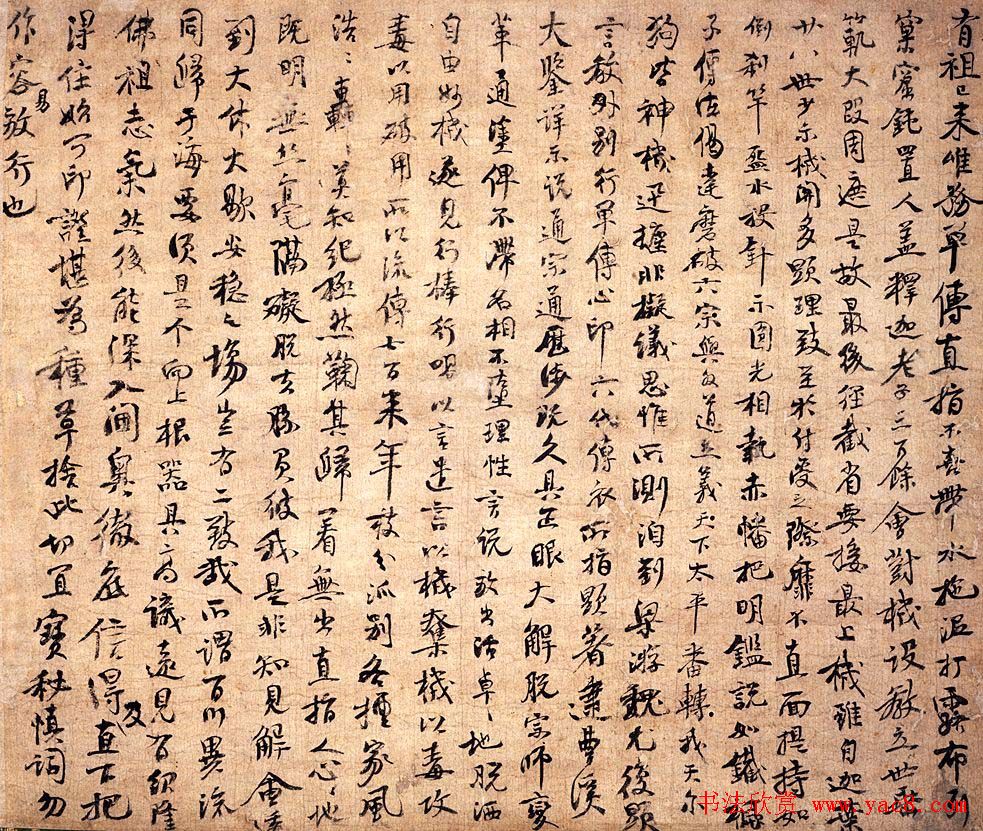 有祖已来唯務單傳直指不喜帶水拖泥打露布列
窠窟鈍置人蓋釋迦老子三百餘會對機設教立世垂
範大段周遮是故最後徑截省要接最上機雖自迦葉
廿八世少示機關多顯理致至於付受之際靡不直面提持如
倒刹竿盋水投針示圓光相執赤幡把明鑑說如鐵橛
子傳法偈達磨破六宗與外道立義天下太平番轉我天尔
狗皆神機迅捷非擬議思惟所測洎到梁游魏尤復顯
言教外別行單傳心印六代傳衣所指顯著逮曹溪
大鑒詳示說通宗通歷涉既久具正眼大解脫宗師變
革通塗俾不滯名相不墮理性言說放出活卓〻地脫洒
自由妙機遂見行棒行喝以言遣言以機奪機以毒攻
毒以用破用所以流傳七百来年枝分派別各擅家風
浩〻轟〻莫知紀極然鞠其歸著無出直指人心〻地
既明無絲毫隔礙脫去勝負彼我是非知見解會透
到大休大歇安穩之場豈有二致哉所謂百川異流
同歸于海要須是个向上根器具高識遠見有紹隆
佛祖志氣然後能深入閫奧徹底信得及直下把
得住始可印證堪為種草捨此切宜寶秘慎詞勿
作容易放行也
书法欣赏 www.yac8.com